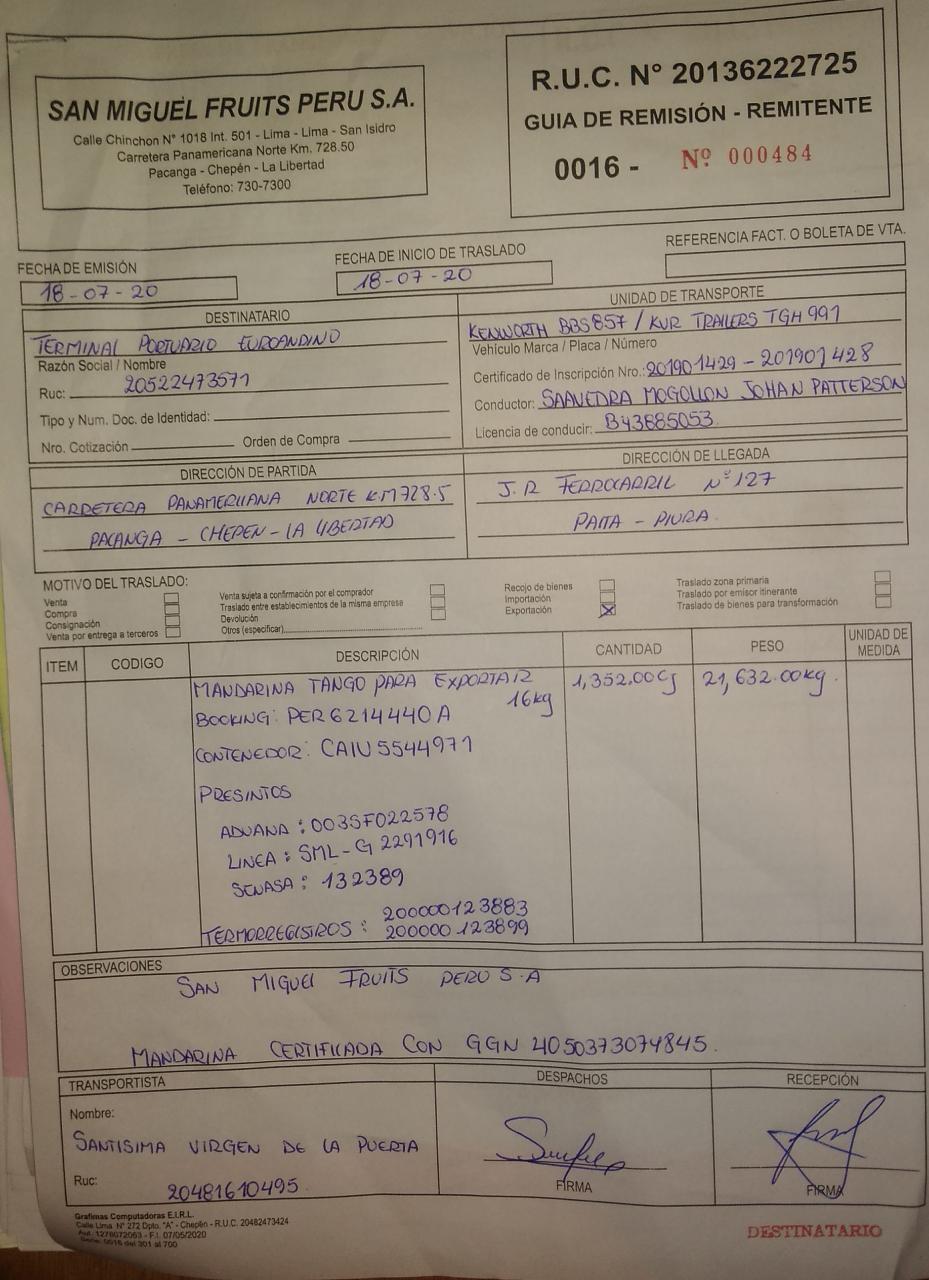 SAN MIGUEL FRUITS PERU S.A.
Calle Chinchon N° 1018 Int. 501 - Lima - Lima - San Isidro
Carretera Panamericana Norte Km. 728.50
Pacanga - Chepén - La Libertad
Teléfono: 730-7300
R.U.C. N° 20136222725
GUIA DE REMISIÓN - REMITENTE
0016 - Nº 000484
FECHA DE EMISIÓN
18-07-20
FECHA DE INICIO DE TRASLADO
18-07-20
REFERENCIA FACT. O BOLETA DE VTA.
DESTINATARIO
TERMINAL PORTUARIO EUROANDINO
Razón Social / Nombre
Ruc: 20522473571
Tipo y Num. Doc. de Identidad:
Nro. Cotización Orden de Compra
UNIDAD DE TRANSPORTE
KENWORTH BBS857 / KVR TRAILERS TGH991
Vehículo Marca / Placa / Número
Certificado de Inscripción Nro.: 201901429 - 201901428
Conductor: SAAVEDRA MOGOLLON JOHAN PATTERSON
Licencia de conducir: B43885053
DIRECCIÓN DE PARTIDA
CARRETERA PANAMERICANA NORTE KM728.5
PACANGA - CHEPEN - LA LIBERTAD
DIRECCIÓN DE LLEGADA
J.R FERROCARRIL Nº127
PAITA - PIURA
MOTIVO DEL TRASLADO:
Venta
Compra
Consignación
Venta por entrega a terceros
Venta sujeta a confirmación por el comprador
Traslado entre establecimientos de la misma empresa
Devolución
Otros (especificar)
Recojo de bienes
Importación
Exportación X
Traslado zona primaria
Traslado por emisor itinerante
Traslado de bienes para transformación
ITEM CODIGO DESCRIPCIÓN CANTIDAD PESO UNIDAD DE MEDIDA
MANDARINA TANGO PARA EXPORTAR 1,352.00Cj 21,632.00kg.
16kg
BOOKING: PER6214440A
CONTENEDOR: CAIU5544971
PRESINTOS
ADUANA: 003SF022578
LINEA: SML-G 2291916
SENASA: 132389
200000123883
TERMORREGISTROS: 200000123899
OBSERVACIONES
SAN MIGUEL FRUITS PERU S.A
MANDARINA CERTIFICADA CON GGN 4050373074845.
TRANSPORTISTA
Nombre:
SANTISIMA VIRGEN DE LA PUERTA
Ruc: 20481610495
DESPACHOS
FIRMA
RECEPCIÓN
FIRMA
Grafimas Computadoras E.I.R.L.
Calle Lima N° 272 Dpto. "A" - Chepén - R.U.C. 20482473424
Aut. 1276072063 - F.I. 07/05/2020
Serie: 0016 del 301 al 700
DESTINATARIO